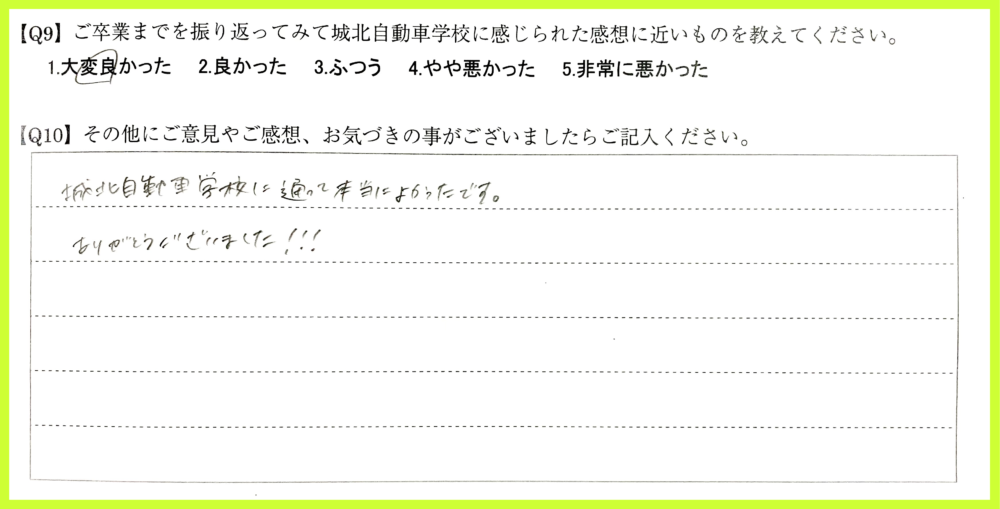 【Q9】ご卒業までを振り返ってみて城北自動車学校に感じられた感想に近いものを教えてください。
1.大変良かった 2.良かった 3.ふつう 4.やや悪かった 5.非常に悪かった
【Q10】その他にご意見やご感想、お気づきの事がございましたらご記入ください。
城北自動車学校に通って本当によかったです。
ありがとうございました!!!